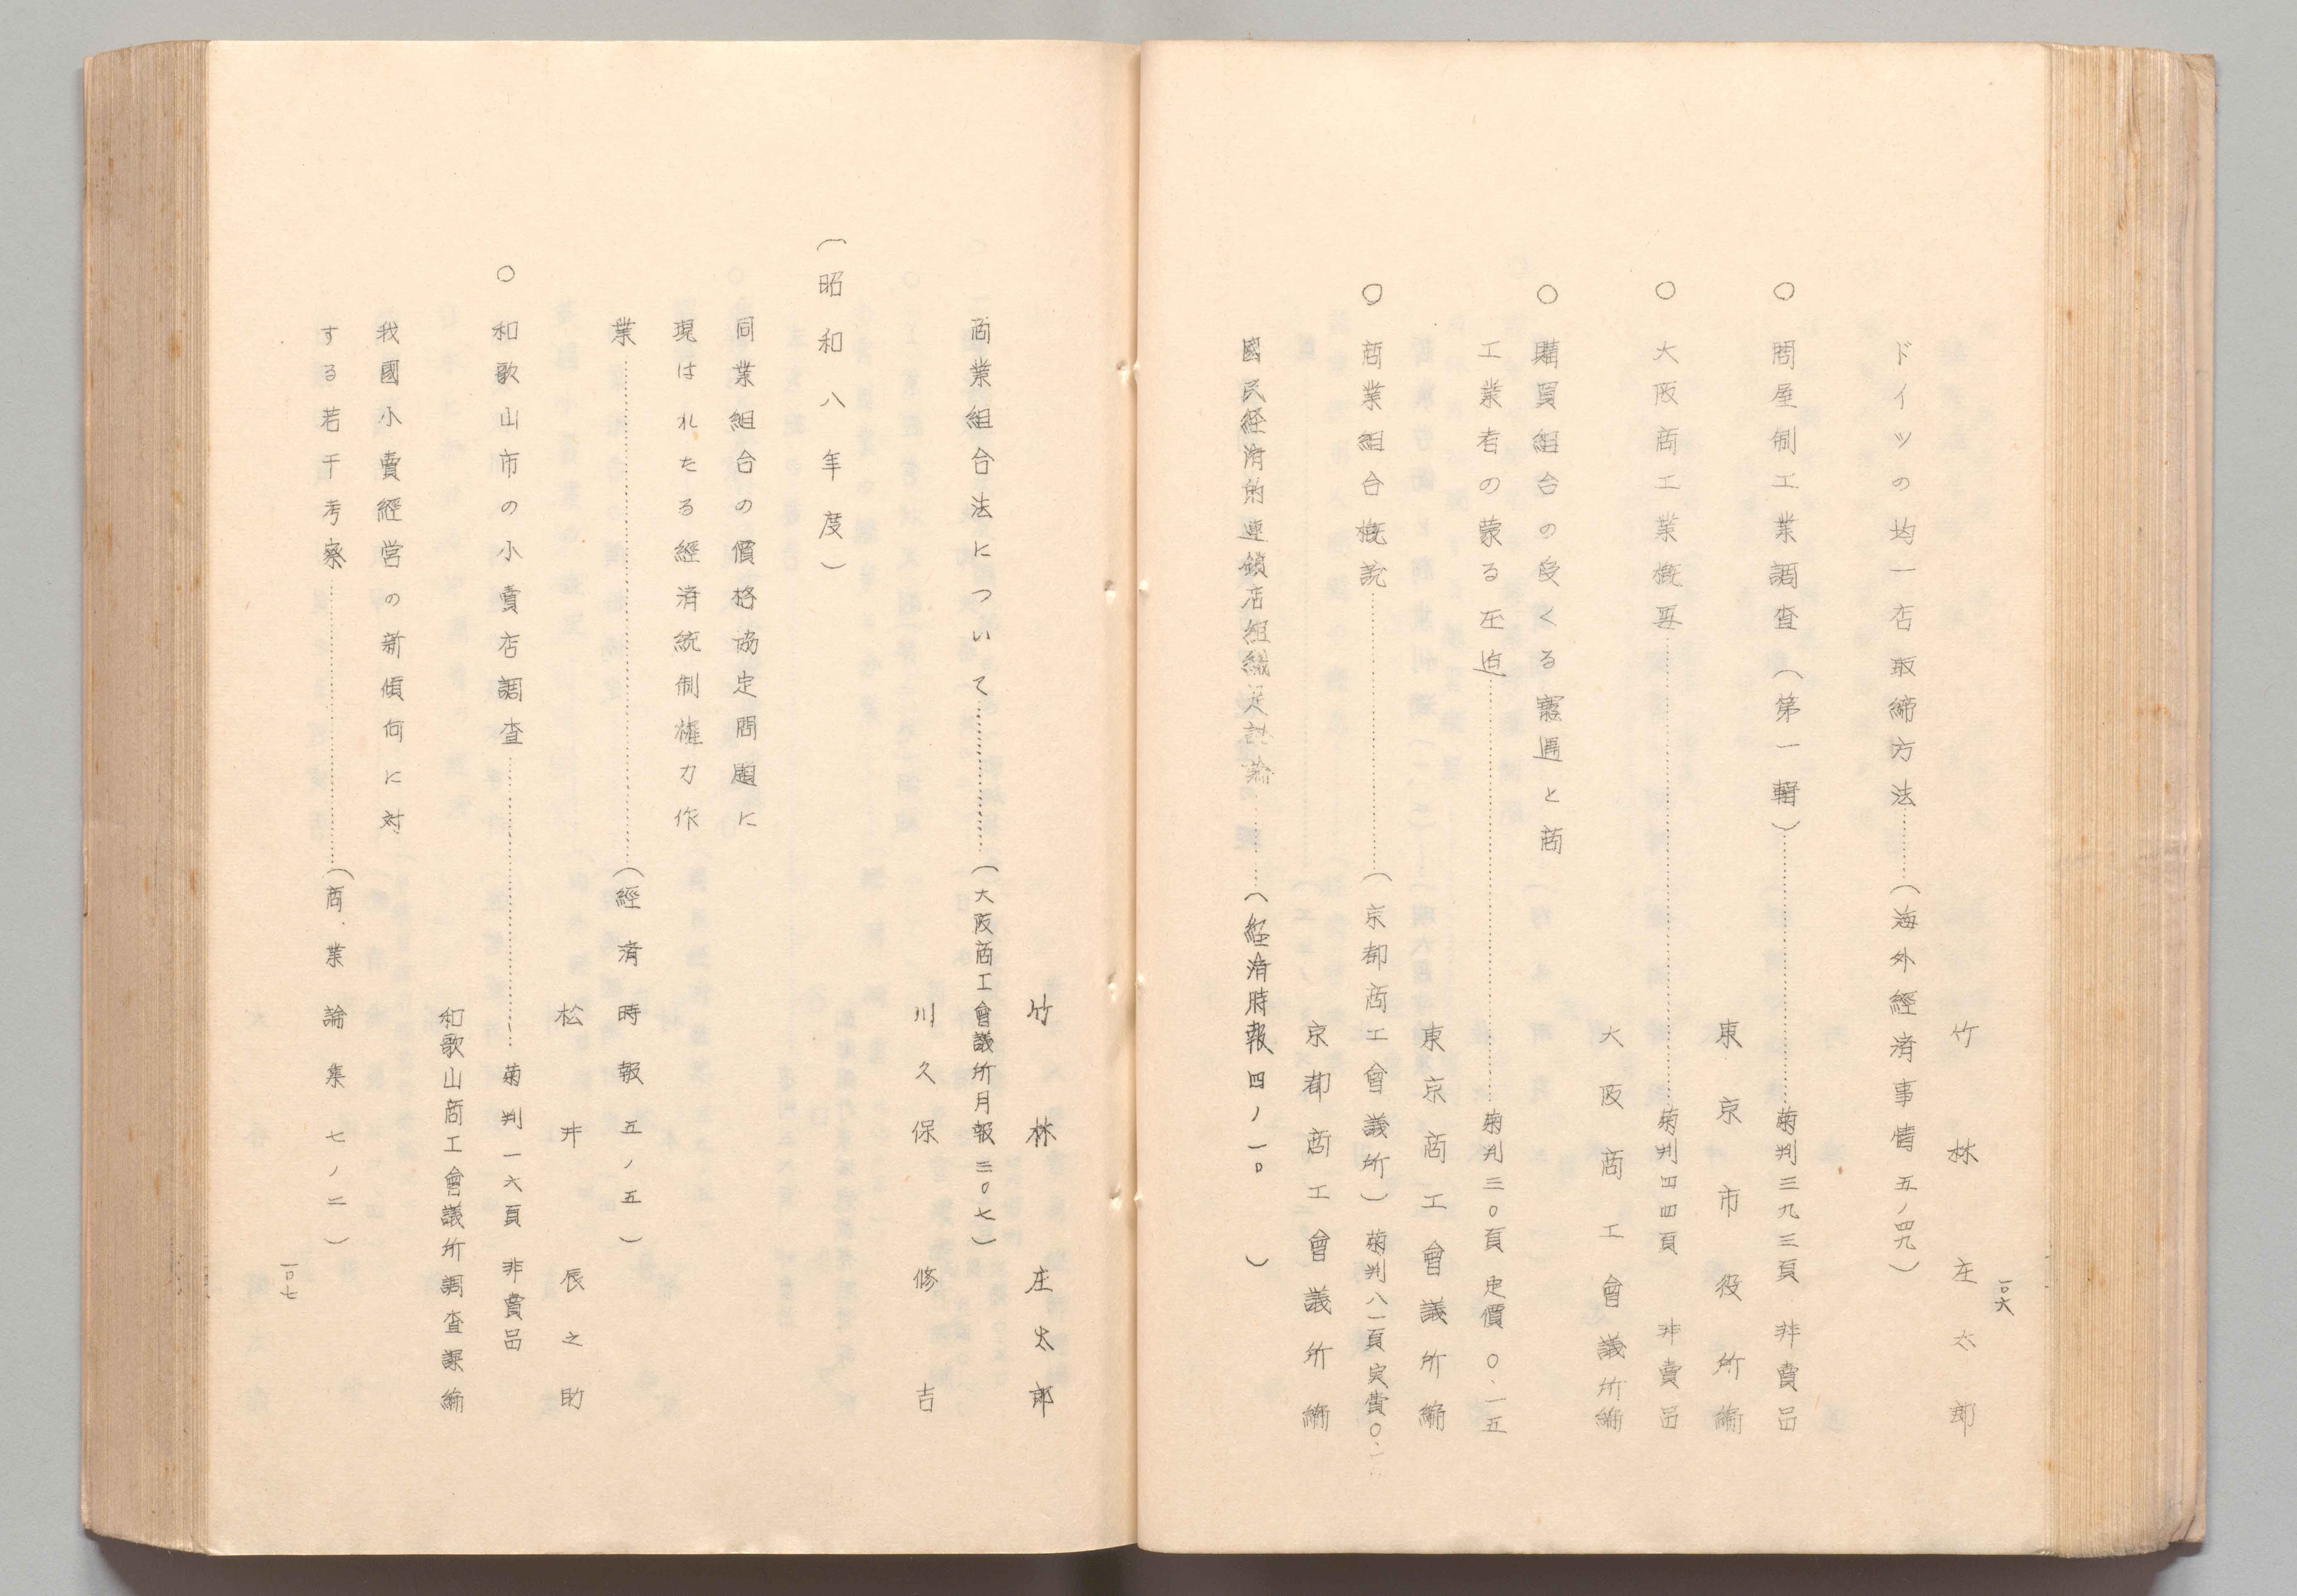 一〇六
竹林庄太郎
ドイツの均一店取締方法………(海外經済事情 五ノ四九)
○問屋制工業調査(第一輯)………菊判三九三頁 非賣品
東京市役所編
○大阪商工業概要………菊判四四頁 非賣品
大阪商工會議所編
○購買組合の受くる寵遇と商
工業者の蒙る圧迫………菊判三〇頁 定價〇.一五
東京商工會議所編
○商業組合概説………(京都商工會議所)菊判八一頁 実費〇.
京都商工會議所編
國民経済的連鎖店組織是非論………(経済時報 四ノ一〇)
竹林庄太郎
商業組合法について………(大阪商工會議所月報 三〇七)
川久保修吉
(昭和八年度)
同業組合の價格協定問題に
現はれたる經済統制權力作
業………(經済時報 五ノ五)
松井辰之助
○和歌山市の小賣店調査………菊判一六頁 非賣品
和歌山商工會議所調査課編
我國小賣經営の新傾向に対
する若干考察………(商業論集 七ノ二)
一〇七